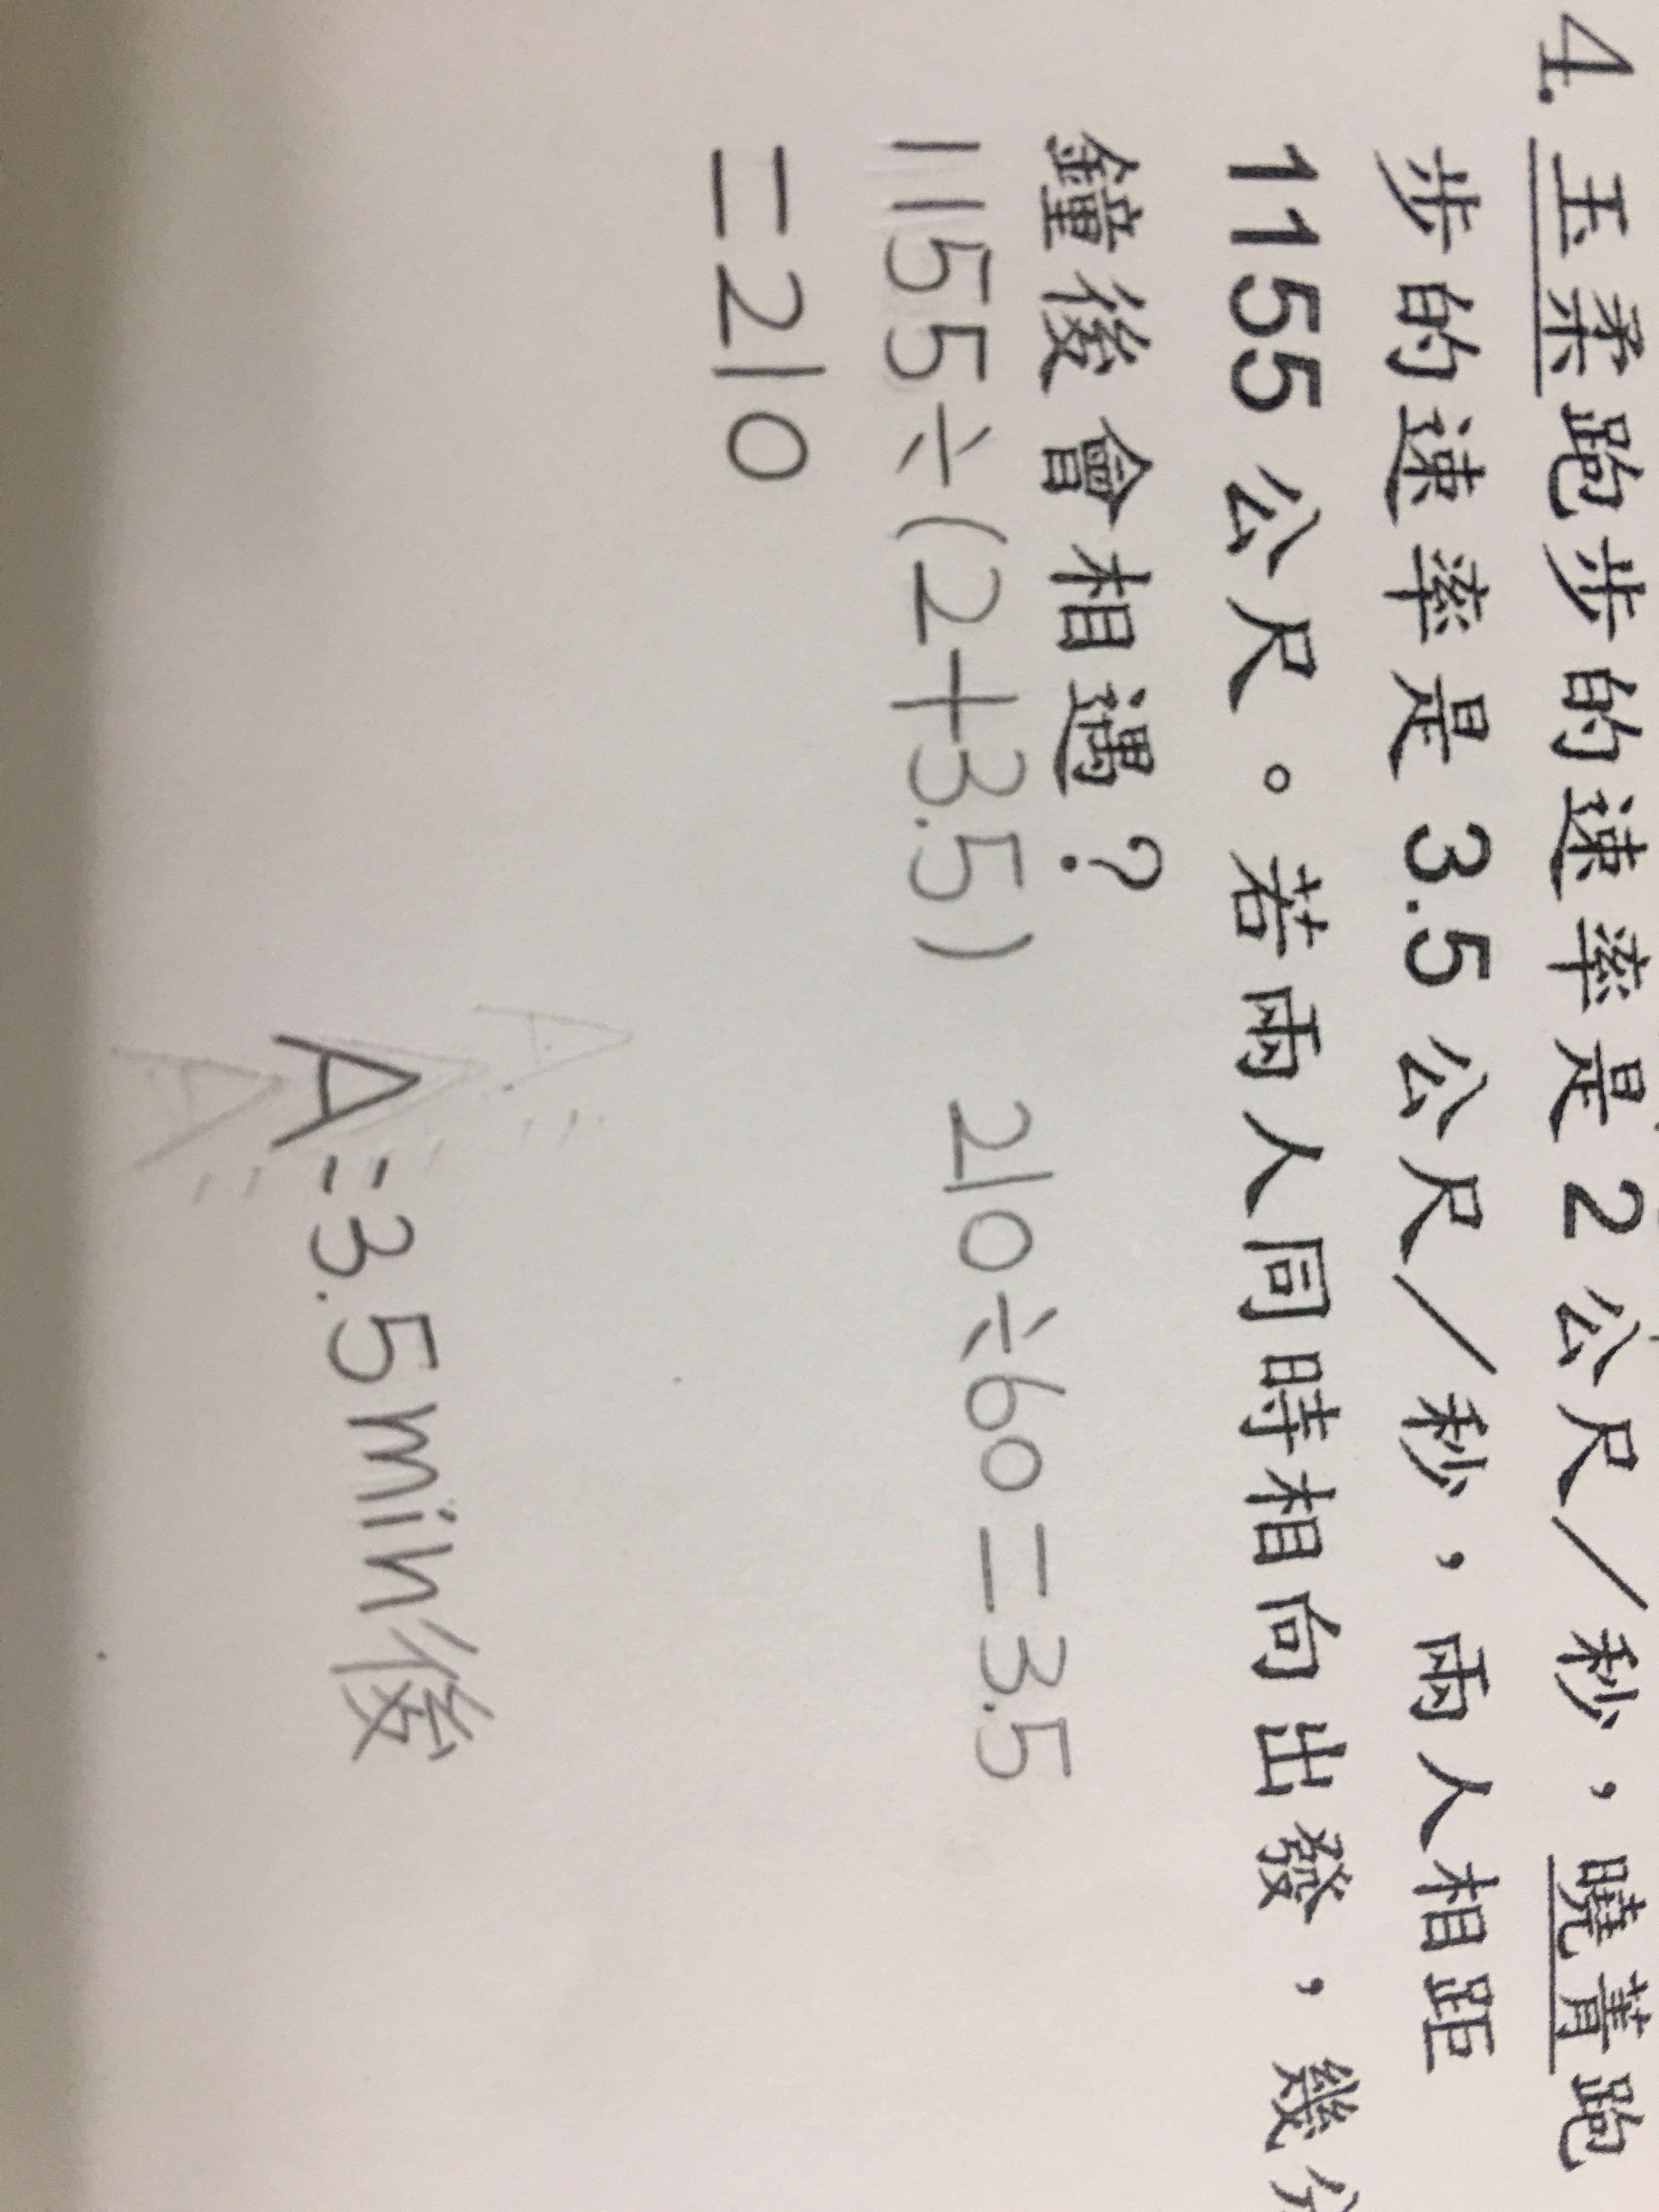 4. 玉柔跑步的速率是 2 公尺／秒，曉菁跑
步的速率是 3.5 公尺／秒，兩人相距
1155 公尺。若兩人同時相向出發，幾分
鐘後會相遇？
1155÷(2+3.5)
=210
210÷60=3.5
A:3.5min後